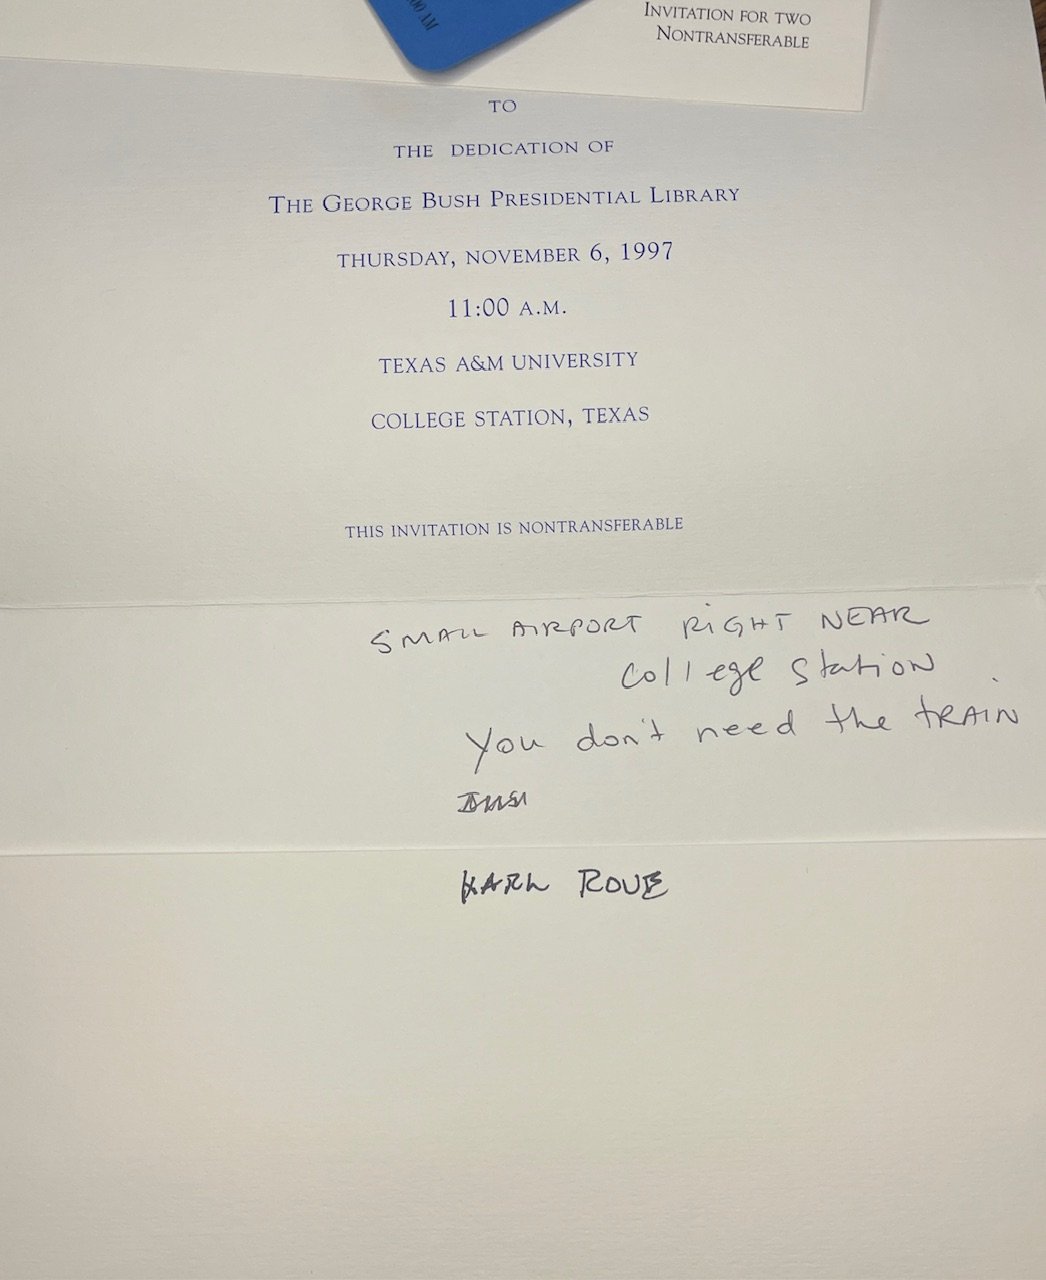 00 AM
INVITATION FOR TWO
NONTRANSFERABLE
TO
THE DEDICATION OF
THE GEORGE BUSH PRESIDENTIAL LIBRARY
THURSDAY, NOVEMBER 6, 1997
11:00 A.M.
TEXAS A&M UNIVERSITY
COLLEGE STATION, TEXAS
THIS INVITATION IS NONTRANSFERABLE
SMALL AIRPORT RiGHT NEAR
College station
You don't need the tRAIN
KARL ROVE